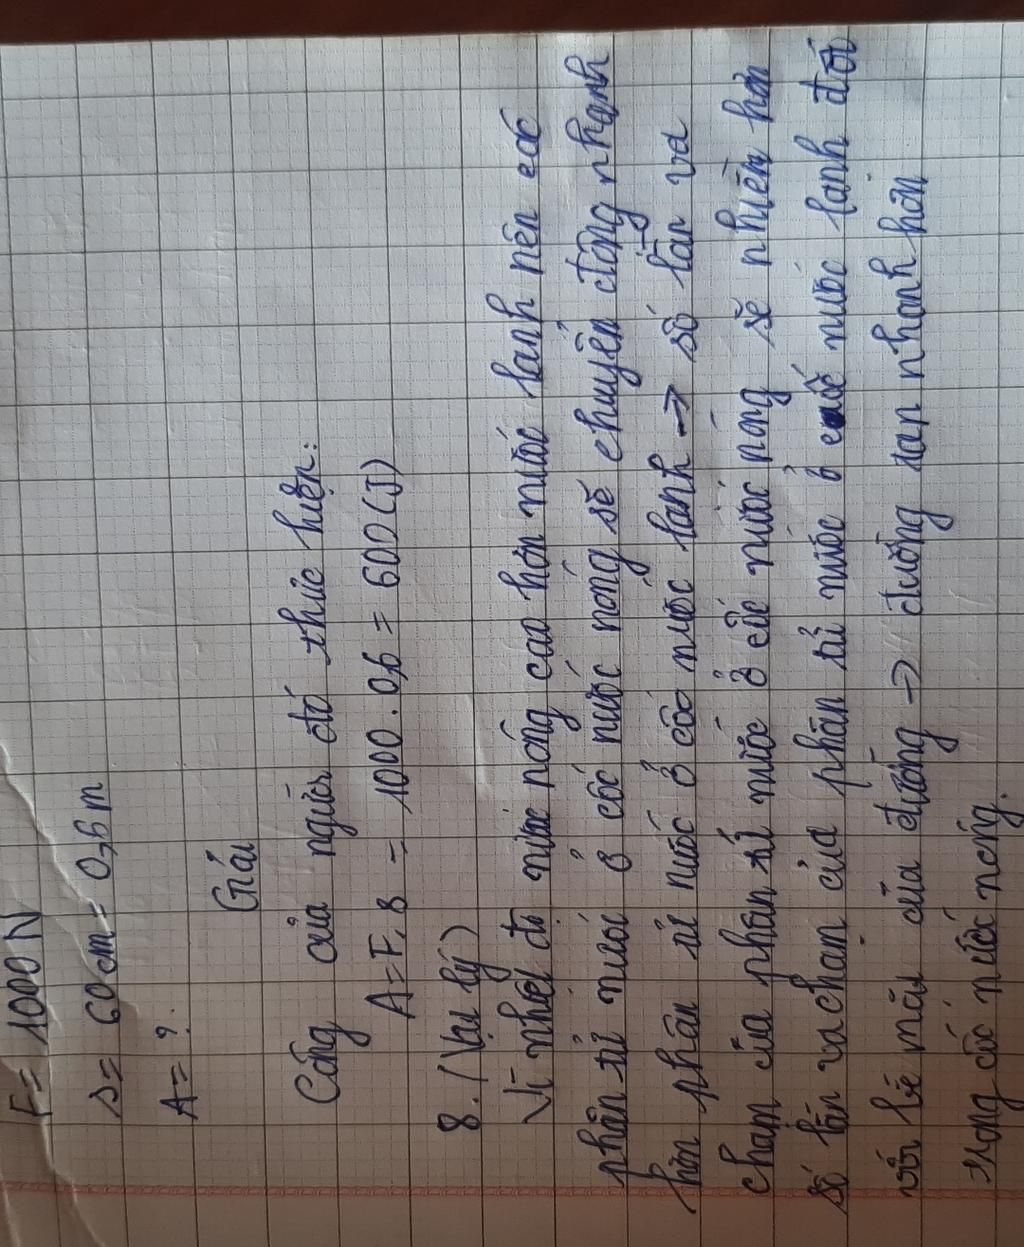 F = 1000 N
s = 60 cm = 0,6 m
A = ?
Giải
Công của người đó thực hiện:
A = F.s = 1000.0,6 = 600 (J)
8. (Vật lý)
Vì nhiệt độ nước nóng cao hơn nước lạnh nên các
phân tử nước ở cốc nước nóng sẽ chuyển động nhanh
hơn phân tử nước ở cốc nước lạnh → số lần va
chạm của phân tử nước ở cốc nước nóng sẽ nhiều hơn
số lần va chạm của phân tử nước ở cốc nước lạnh đối
với bề mặt của đường → đường tan nhanh hơn
trong cốc nước nóng.